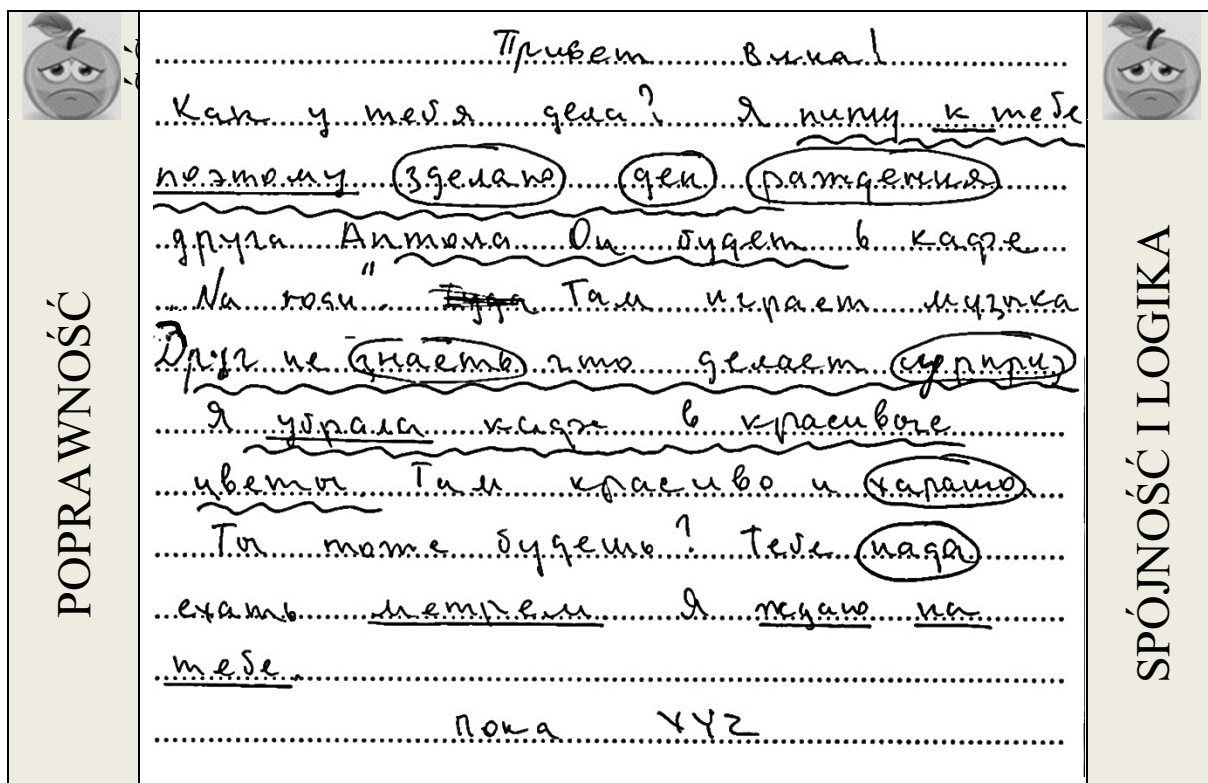 POPRAWNOŚĆ
Привет Вика!
Как у тебя дела? Я пишу к тебе
поэтому зделаю ден ражденния
друга Антола Он будет в кафе
"На роди. Там играет музыка
Друг не знаеть что делает сурприз
Я убрала кафе в красивые
цветы Там красиво и харашо
Ты тоже будешь? Тебе нада
ехать метрем Я ждаю на
тебе.
Пока XYZ
SPÓJNOŚĆ I LOGIKA